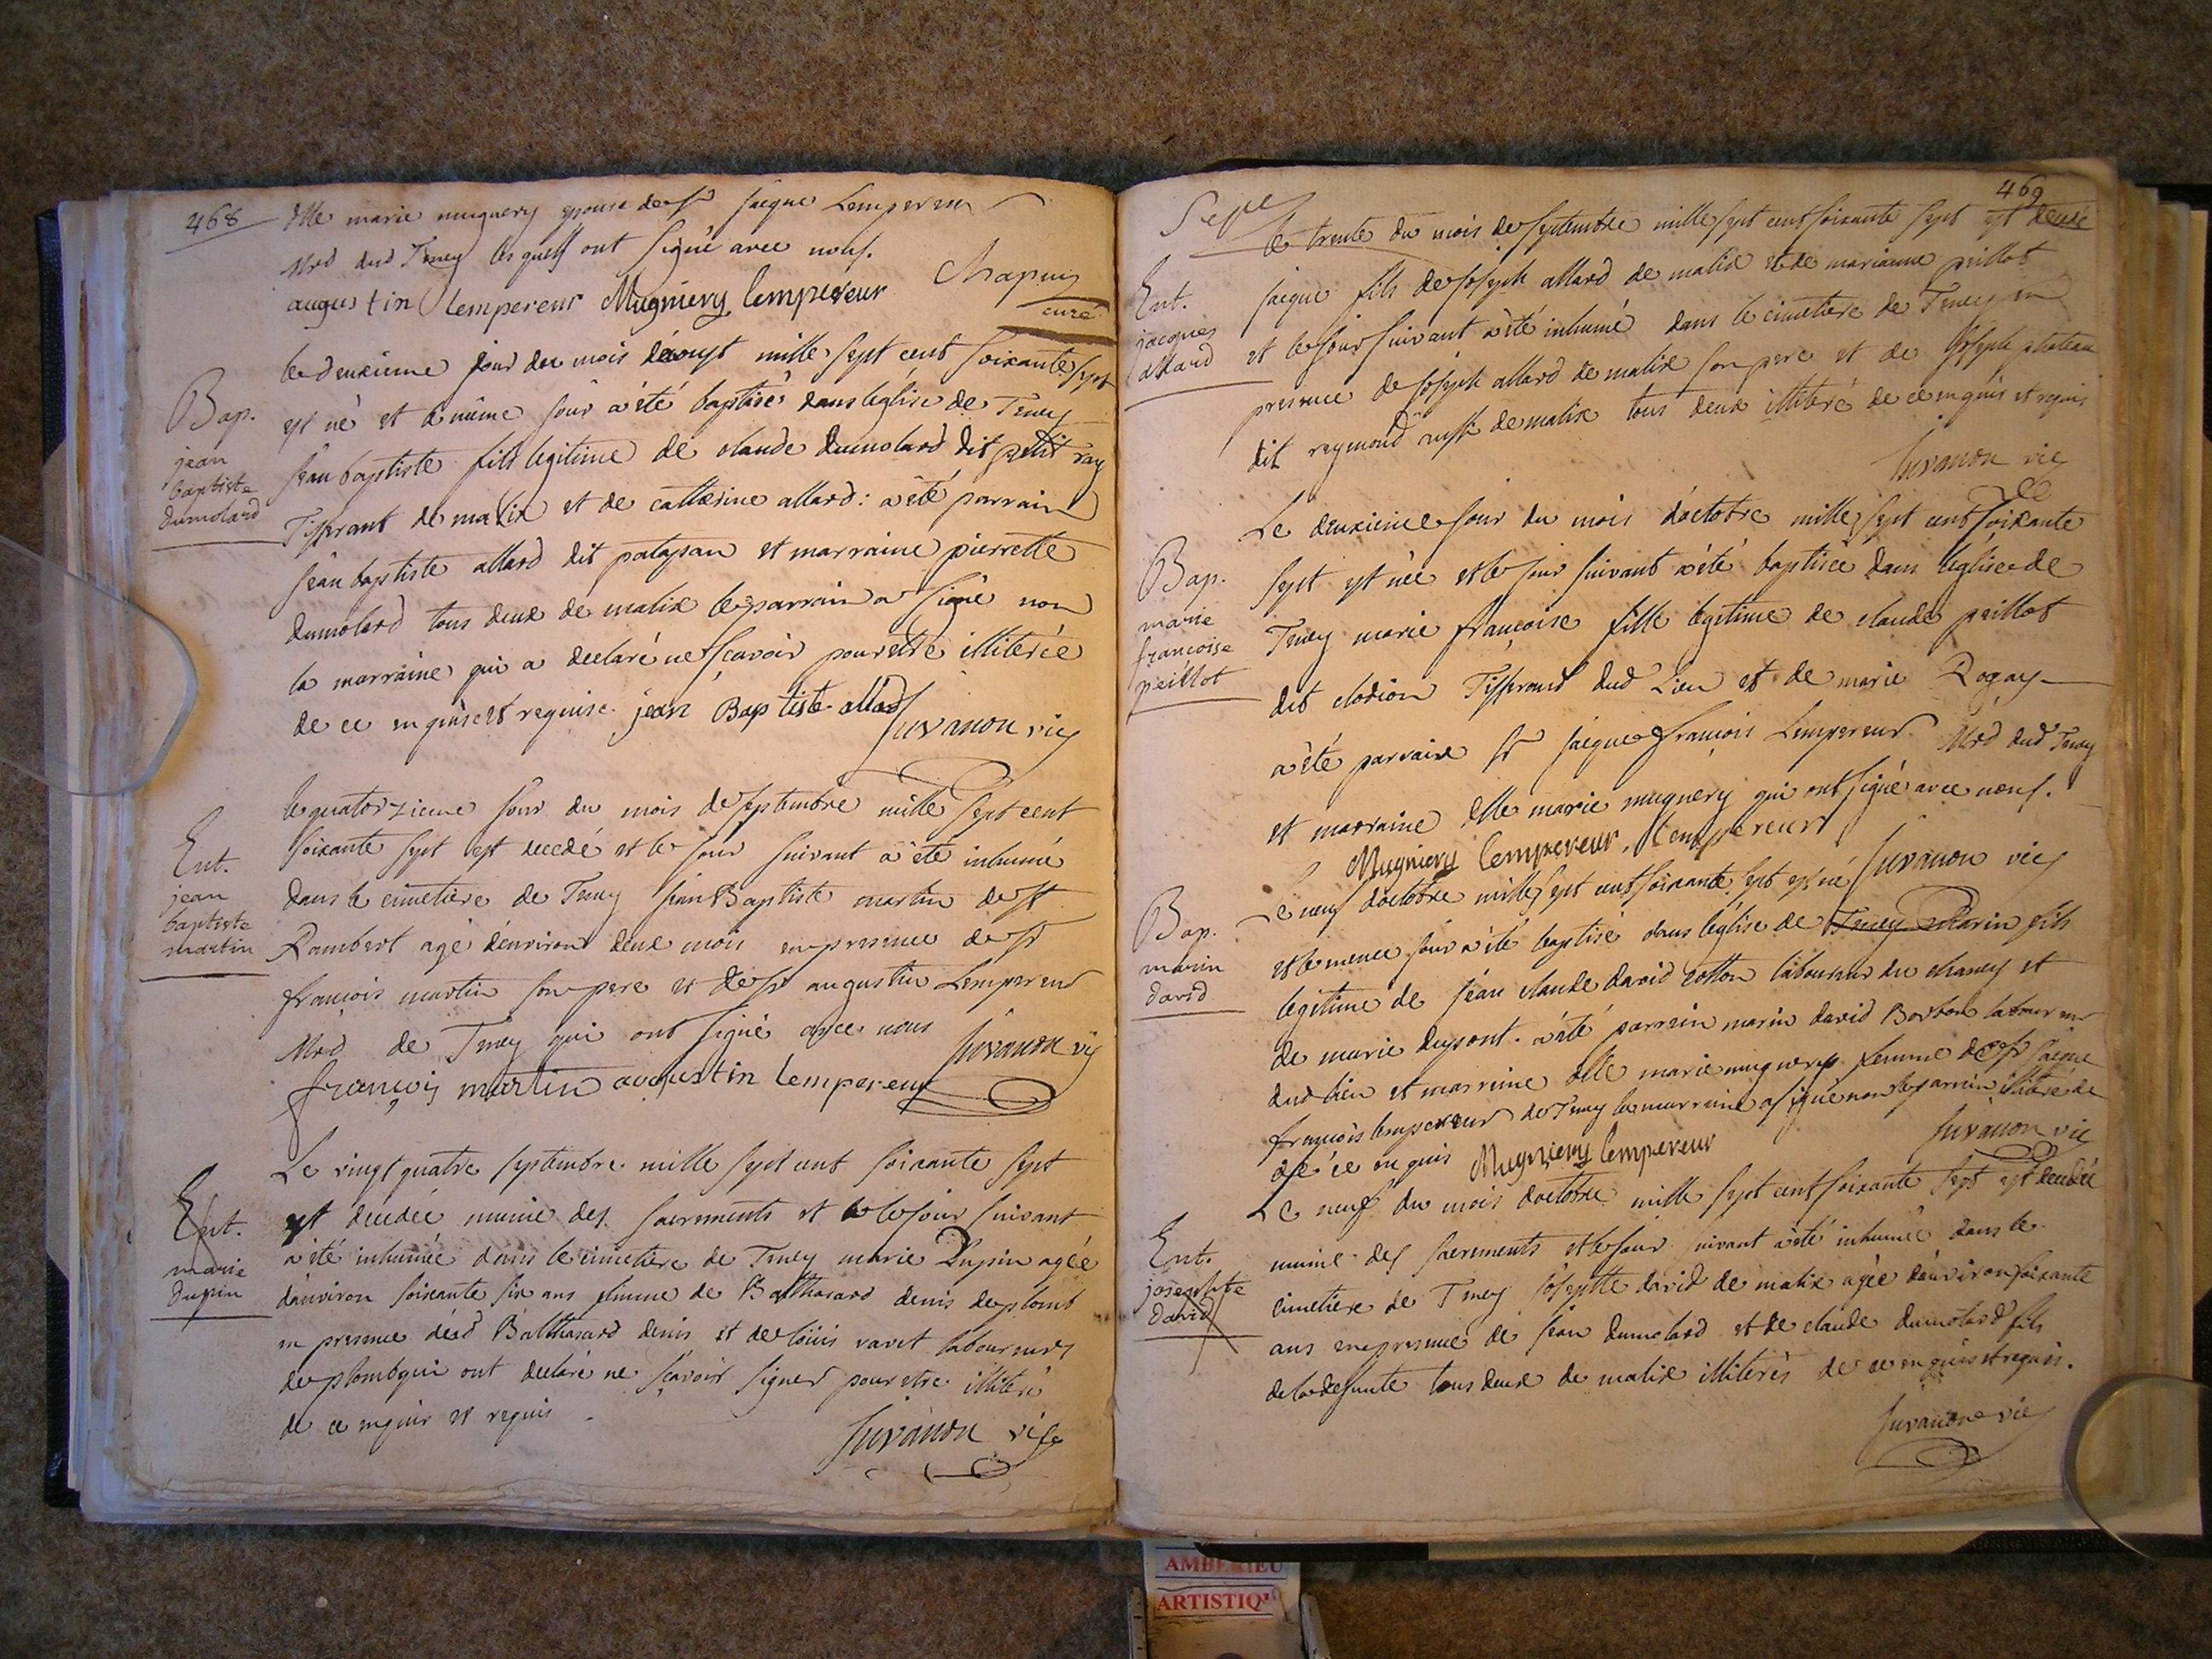 468
dlle marie mugnery epouse de sr jacque Lempereur
Mrd dud Teney lesquels ont signé avec nous.
augustin lempereur Mugniery lempereur Chapuy
curé
Bap.
jean
baptiste
dumolard
le deuxieme jour du mois d'aoust mille sept cent soixante sept
est né et le même jour a été baptisé dans l'église de Teney
jean baptiste fils legitime de claude dumolard dit petit ray
Tisserant de malix et de catherine allard: a été parrain
jean baptiste allard dit patapan et marraine pierrette
dumolard tous deux de malix le parrain a signé non
la marraine qui a declaré ne scavoir pour etre illiterée
de ce enquise et requise. jean Baptiste allard Juvanon vic
Ent.
jean
baptiste
martin
le quatorzieme jour du mois de septembre mille sept cent
soixante sept est decedé et le jour suivant a été inhumé
dans le cimetiere de Teney jean Baptiste martin de st
Rambert agé d'environ deux mois en presence de sr
françois martin son pere et de sr augustin Lempereur
Mrd de Teney qui ont signé avec nous Juvanon vic
françois martin augustin lempereur
Ent.
marie
dupin
Le vingt quatre septembre mille sept cent soixante sept
est decedée munie des sacrements et le jour suivant
a été inhumée dans le cimetiere de Teney marie Dupin agée
d'environ soixante six ans femme de Balthazard denis de plomb
en presence dud Balthazard denis et de loüis ravet laboureurs
de plomb qui ont declaré ne sçavoir signer pour etre illiteré
de ce enquis et requis.
Juvanon vic
469
Sepe
Ent.
jacques
allard
le trente du mois de septembre mille sept cent soixante sept est decedé
jacque fils de joseph allard de malix et de marianne peillot
et le jour suivant a été inhumé dans le cimetiere de Teney en
presence de joseph allard de malix son pere et de joseph plateau
dit raymond aussi de malix tous deux illiteré de ce enquis et requis
Juvanon vic
Bap.
marie
françoise
peillot
Le deuxieme jour du mois d'octobre mille sept cent soixante
sept est née et le jour suivant a été baptisée dans l'église de
Teney marie françoise fille legitime de claude peillot
dit clodion Tisserand dud Lieu et de marie Rogay
a été parrain sr jacque françois Lempereur Mrd dud Teney
et marraine dlle marie mugnery qui ont signé avec nous.
Mugniery lempereur, lempereur Juvanon vic
Bap.
marin
david
Le neuf d'octobre mille sept cent soixante sept est né
et le meme jour a été baptisé dans l'église de Teney Marin fils
legitime de jean claude david cotton laboureur du chaney et
de marie dupont. a été parrain marin david Borbon laboureur
dud lieu et marraine dlle marie mugnery femme de sr jacque
françois lempereur de Teney la marraine a signé non le parrain illiteré de
de ce enquis Mugniery lempereur Juvanon vic
Ent.
josephte
david
Le neuf du mois d'octobre mille sept cent soixante sept est decedée
munie des sacrements et le jour suivant a été inhumée dans le
cimetiere de Teney josephte david de malix agée d'environ soixante
ans en presence de jean dumolard et de claude dumolard fils
de la defunte tous deux de malix illiterés de ce enquis et requis.
Juvanon vic
AMBERIEU
ARTISTIQ